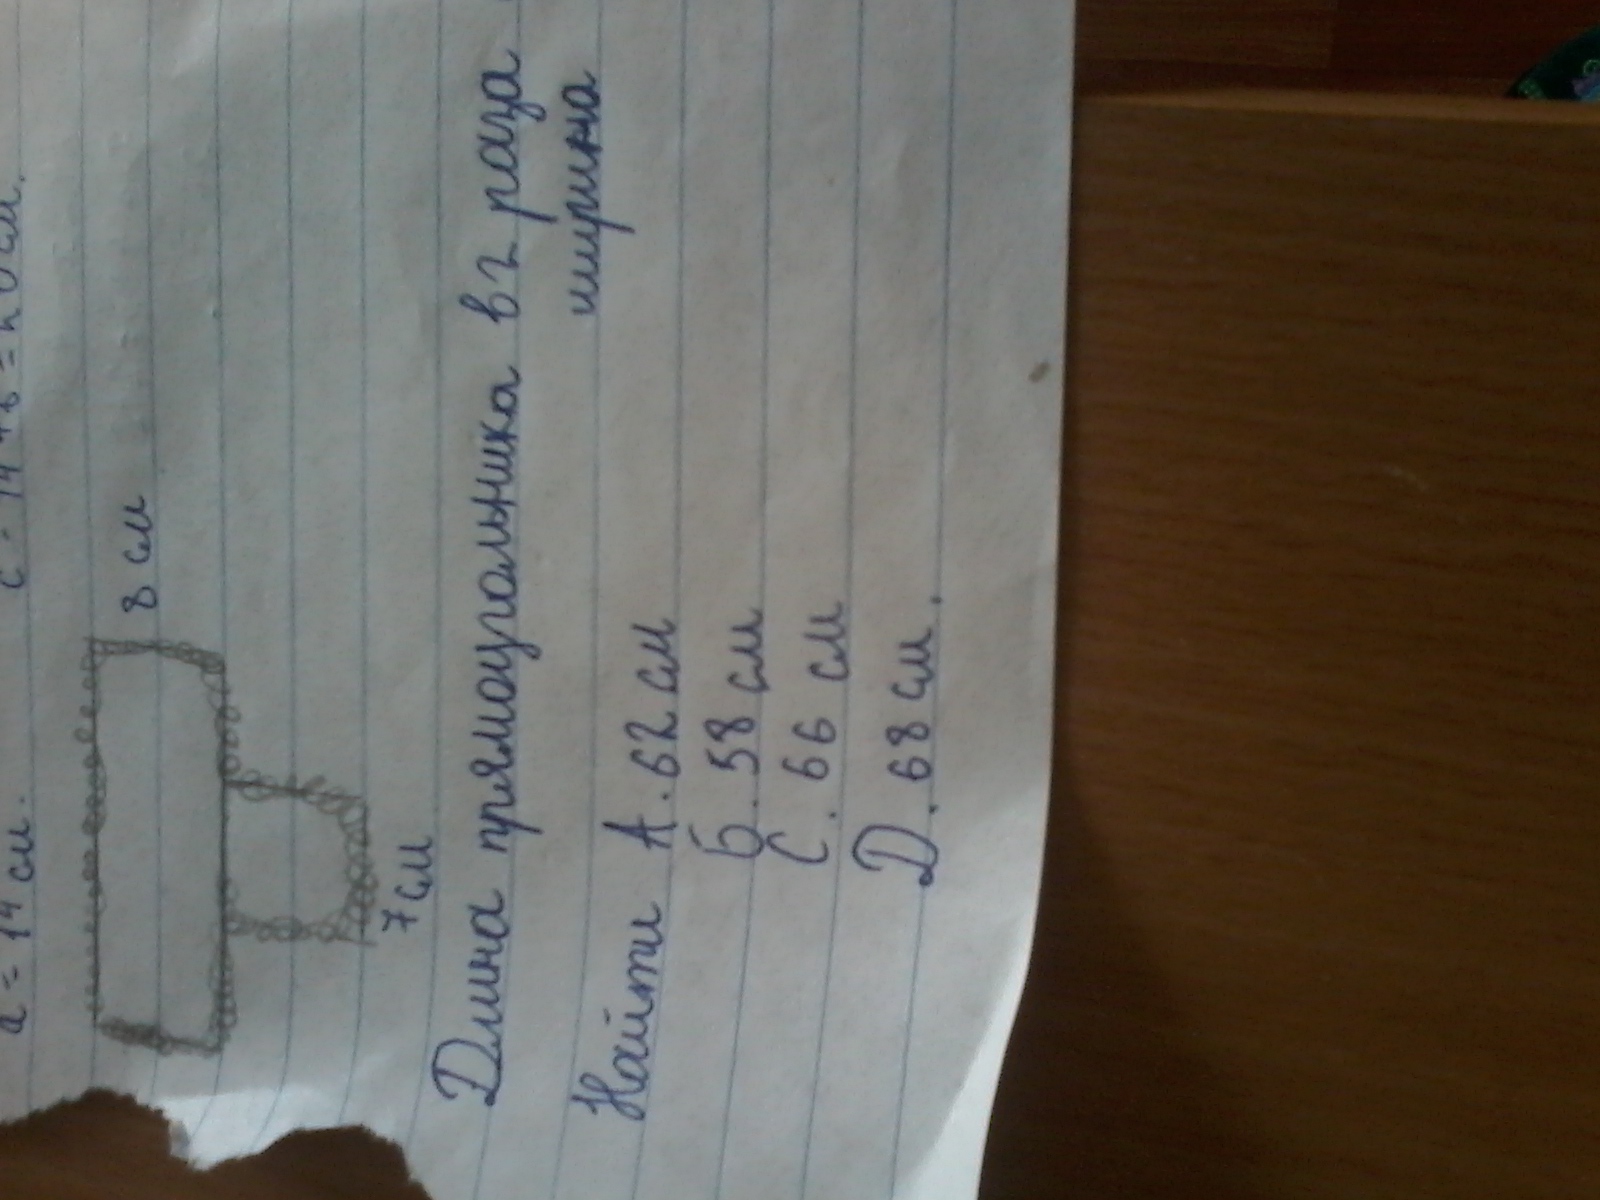 a = 14 см.
8 см
7 см
Длина прямоугольника в 2 раза
ширина
Найти А. 62 см
Б. 58 см
С. 66 см
D. 68 см.